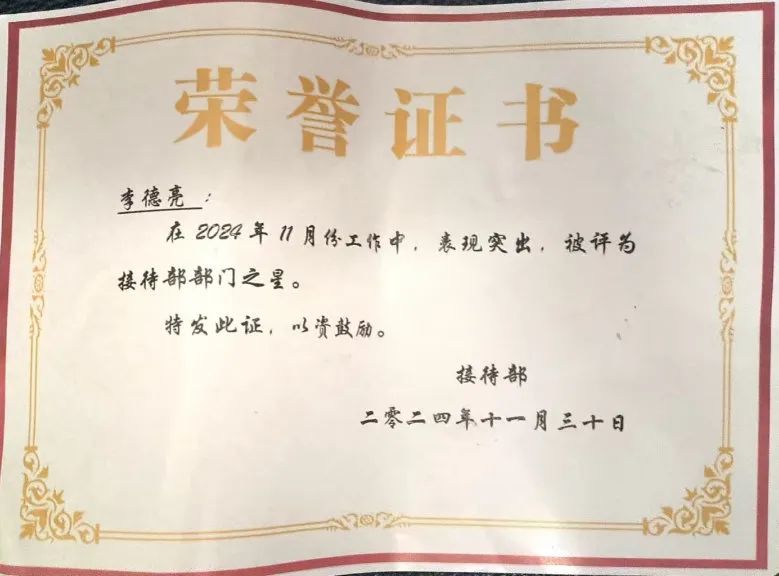 荣誉证书
李德亮：
在2024年11月份工作中，表现突出，被评为
接待部部门之星。
特发此证，以资鼓励。
接待部
二零二四年十一月三十日